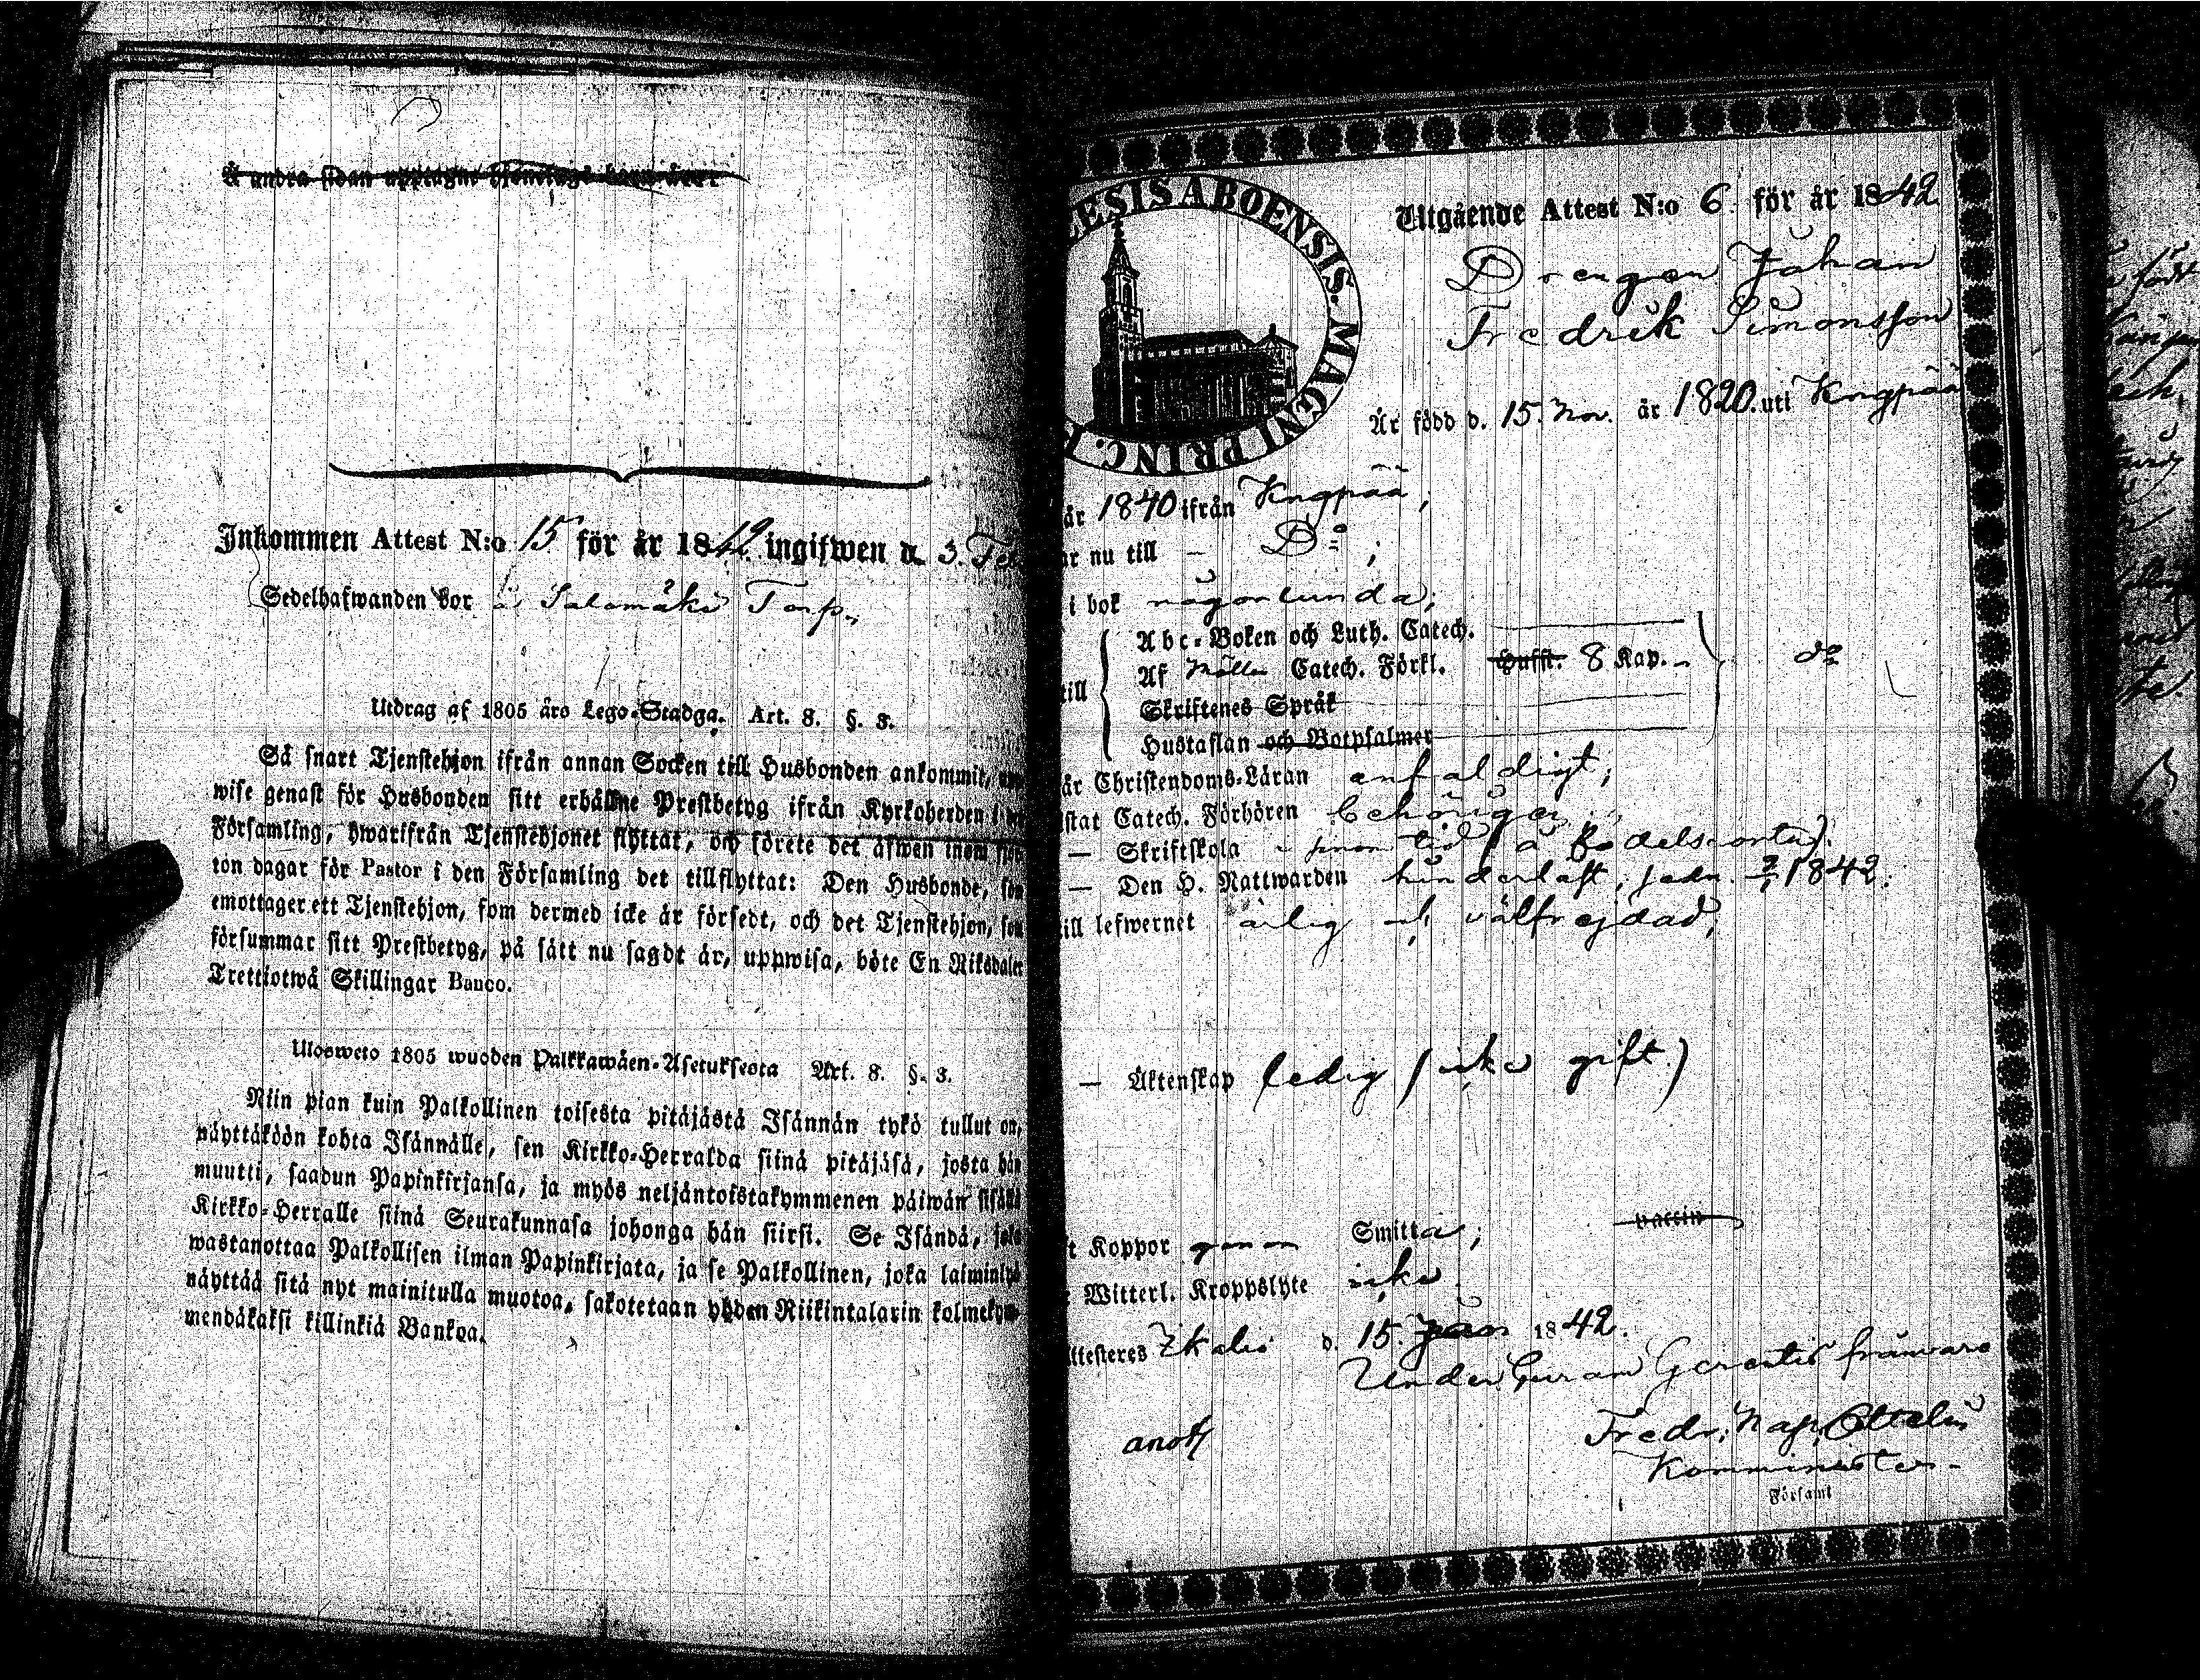 Å andra sidan upptagne tjenstehjon
Inkommen Attest N:o 15 för år 1842 ingifwen d. 3. Feb
Sedelhafwanden bor å Salomäki Torp.
Utdrag af 1805 åro Lego-Stadga. Art. 8. §. 3.
Så snart Tjenstehjon ifrån annan Socken till Husbonden ankommit,
wise genast för Husbonden sitt erhållne Prestbetyg ifrån Kyrkoherden i
Församling, hwarifrån Tjenstehjonet flyttat, och förete det äfwen inom fjor-
ton dagar för Pastor i den Församling det tillflyttat: Den Husbonde, som
emottager ett Tjenstehjon, som dermed icke är försedt, och det Tjenstehjon, som
försummar sitt Prestbetyg, på sätt nu sagdt är, uppwisa, böte En Riksdaler
Trettiotwå Skillingar Banco.
Ulosweto 1805 wuoden Palkkawäen-Asetuksesta Art. 8. §. 3.
Niin pian kuin Palkollinen toisesta pitäjästä Isännän tykö tullut on,
näyttäköön kohta Isännälle, sen Kirkko-Herralda siinä pitäjäsä, josta hän
muutti, saadun Papinkirjansa, ja myös neljäntoistakymmenen päiwän sisällä
Kirkko-Herralle siinä Seurakunnasa johonga hän siirsi. Se Isändä, joka
wastanottaa Palkollisen ilman Papinkirjata, ja se Palkollinen, joka laiminlyö
näyttää sitä nyt mainitulla muotoa, sakotetaan yhden Riikintalarin kolmekym-
mendäkaksi killinkiä Bankoa.
ESIS ABOENSIS. MAGNI PRINC. F
Utgående Attest N:o 6. för år 1842
Drengen Johan
Fredrik Simonsson
Är född d. 15. Nov. år 1820. uti Kngpää
år 1840 ifrån Kngpää;
ar nu till – D:o;
i bok någorlunda;
Abc-Boken och Luth. Catech.
till Af Möllers Catech. Förkl. Hufst. 8 Kap. d:o
Skriftenes Språk
Hustaflan och Botpsalmer
är Christendoms-Läran enfaldigt;
istat Catech. Förhören behörigen;
— Skriftskola i sinom tid (å födelseorten).
— Den H. Nattwarden sedn. 1842.
till lefwernet ärlig och välfrejdad;
— Äktenskap ledig (icke gift)
t Koppor genom Smitta; vaccin
Witterl. Kroppslyte icke.
ttesteres Ikalis d. 15. 1842.
Under Frånvaro
Fredr.
Komminister
Församl